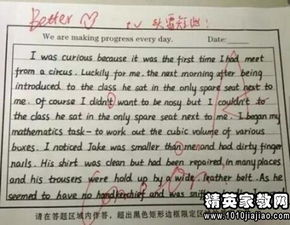 Better
We are making progress every day. Date:
I was curious because it was the first time I had meet
from a circus. Luckily for me. the next morning after being
introduced to the class he sat in the only spare seat next to
me. Of course I didn't want to be nosy but I couldn't to
the class he sat in the only spare seat next to me. I began my
mathematics task- to work out the cubic volume of various
boxes. I noticed Jake was smaller than men and had dirty finger
nails. His shirt was clean but had been repaired in many places
and his trousers were hold up by a wide rather belt. As he
seemed to have no handkerchief and was sniffing
请在答题区域内作答,超出黑色矩形边框限定区
精英家教网
www.1010jiajiao.com